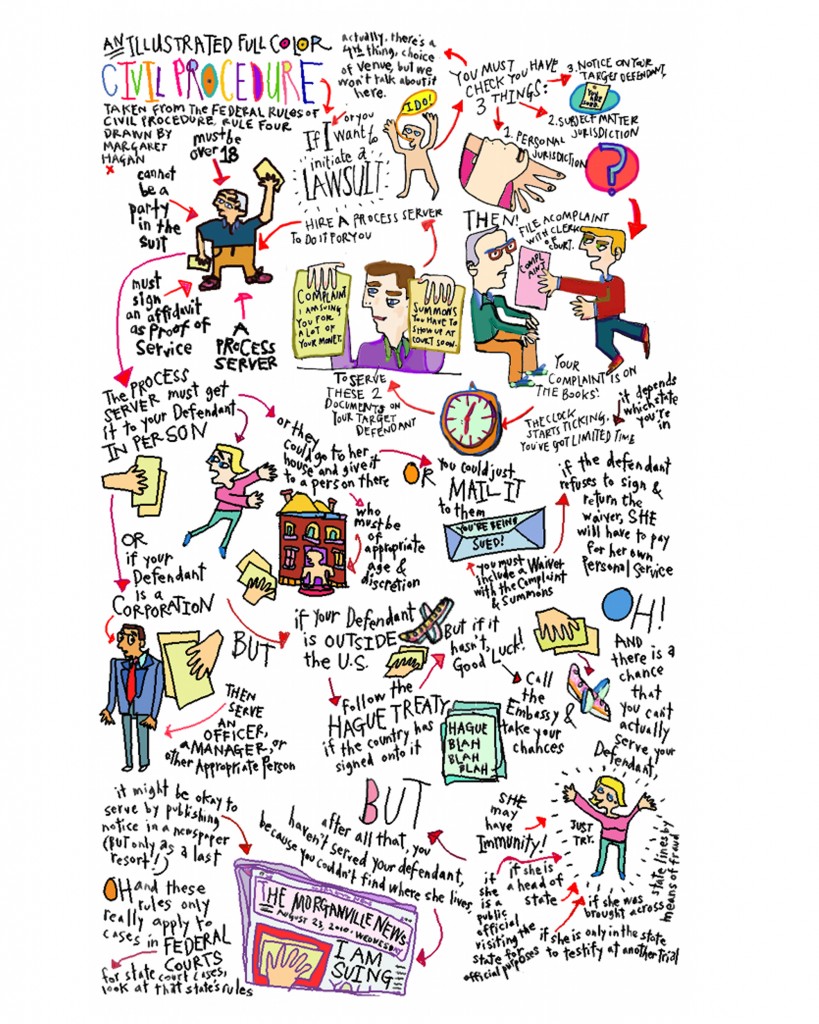 AN ILLUSTRATED FULL COLOR
CIVIL PROCEDURE
TAKEN FROM THE FEDERAL RULES OF
CIVIL PROCEDURE, RULE FOUR
DRAWN BY
MARGARET
HAGAN
actually, there's a
4th thing, choice
of venue, but we
won't talk about it
here.
YOU MUST
CHECK YOU HAVE
3 THINGS:
3. NOTICE ON YOUR
TARGET DEFENDANT.
YOU ARE
SUED!
2. SUBJECT MATTER
JURISDICTION
?
1. PERSONAL
JURISDICTION
or you
If I
want to
initiate a
LAWSUIT
I DO!
must be
over 18
cannot
be a
party
in the
suit
must
sign
an affidavit
as Proof of
Service
A
PROCESS
SERVER
HIRE A PROCESS SERVER
TO DO IT FOR YOU
THEN!
FILE A COMPLAINT
WITH CLERK
OF
COURT.
COMPL
AINT
COMPLAINT
I AM SUING
YOU FOR
A LOT OF
YOUR MONEY.
SUMMONS
YOU HAVE TO
SHOW UP AT
COURT SOON.
YOUR
COMPLAINT IS ON
THE BOOKS!
THE CLOCK
STARTS TICKING.
YOU'VE GOT LIMITED TIME
it depends
which state
you're
in
TO SERVE
THESE 2
DOCUMENTS ON
YOUR TARGET
DEFENDANT
The PROCESS
SERVER must get
it to your Defendant
IN PERSON
or they
could go to her
house and give it
to a person there
who
must be
of
appropriate
age &
discretion
OR
you could just
MAIL IT
to them
YOU'RE BEING
SUED!
you must
include a Waiver
with the Complaint
& Summons
if the defendant
refuses to sign &
return the
waiver, SHE
will have to pay
for her own
Personal Service
OR
if your
Defendant
is a
CORPORATION
THEN
SERVE
AN
OFFICER,
A MANAGER, or
other Appropriate Person
BUT
if your Defendant
is OUTSIDE
the U.S.
follow the
HAGUE TREATY
if the country has
signed onto it
HAGUE
BLAH
BLAH
BLAH
But if it
hasn't,
Good Luck!
Call
the
Embassy &
take your
chances
OH!
AND
there is a
chance
that
you can't
actually
serve your
Defendant,
JUST
TRY.
SHE
may
have
Immunity!
if she is
a head of
state
if
she
is a
public
official
visiting the
state for
official purposes
if she is only in the state
to testify at another trial
if she was
brought across
state lines by
means of fraud
BUT
after all that, you
haven't served your defendant,
because you couldn't find where she lives,
it might be okay to
serve by publishing
notice in a newspaper
(but only as a last
resort!)
THE MORGANVILLE NEWS
AUGUST 23, 2010. WEDNESDAY
I AM
SUING
OH and these
rules only
really apply to
cases in FEDERAL
COURTS
for state court cases,
look at that state's rules